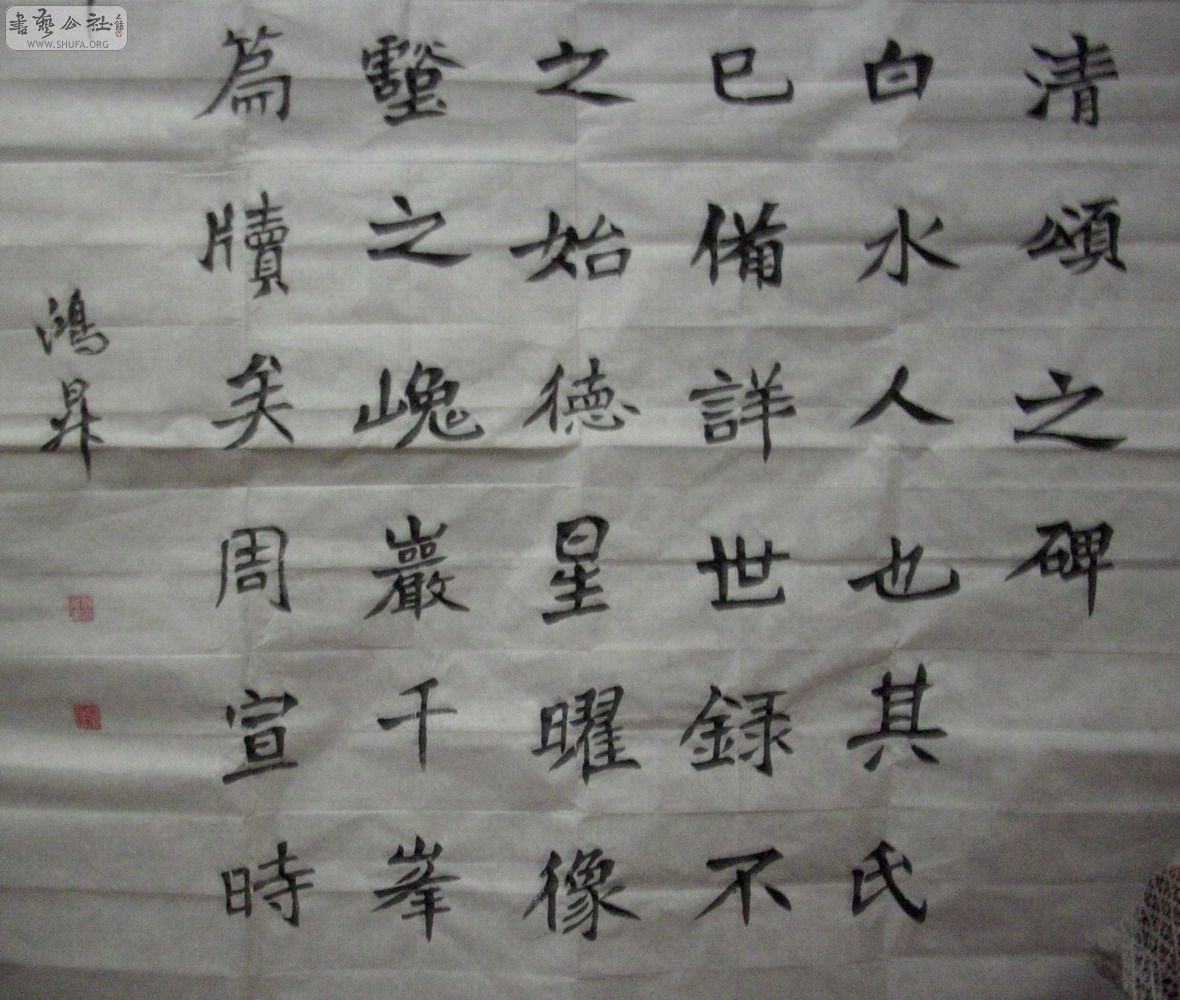 書藝公社
WWW.SHUFA.ORG
清頌之碑
白水人也其氏
已備詳世録不
之始德星曜像
壑之嵬巖千峯
篇牘矣周宣時
鴻昇